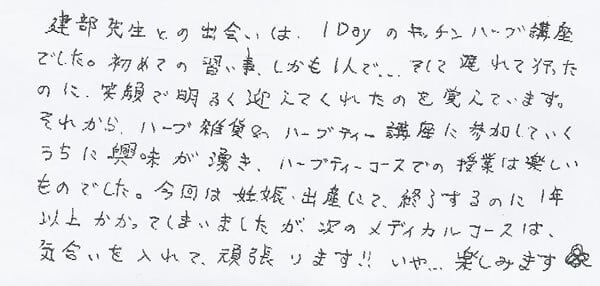 建部先生との出会いは、1Dayのキッチンハーブ講座
でした。初めての習い事、しかも1人で… そして遅れて行った
のに、笑顔で明るく迎えてくれたのを覚えています。
それから、ハーブ雑貨や、ハーブティー講座に参加していく
うちに興味が湧き、ハーブティーコースでの授業は楽しい
ものでした。今回は妊娠、出産にて、終了するのに1年
以上かかってしまいましたが、次のメディカルコースは、
気合いを入れて、頑張ります!! いや…楽しみます